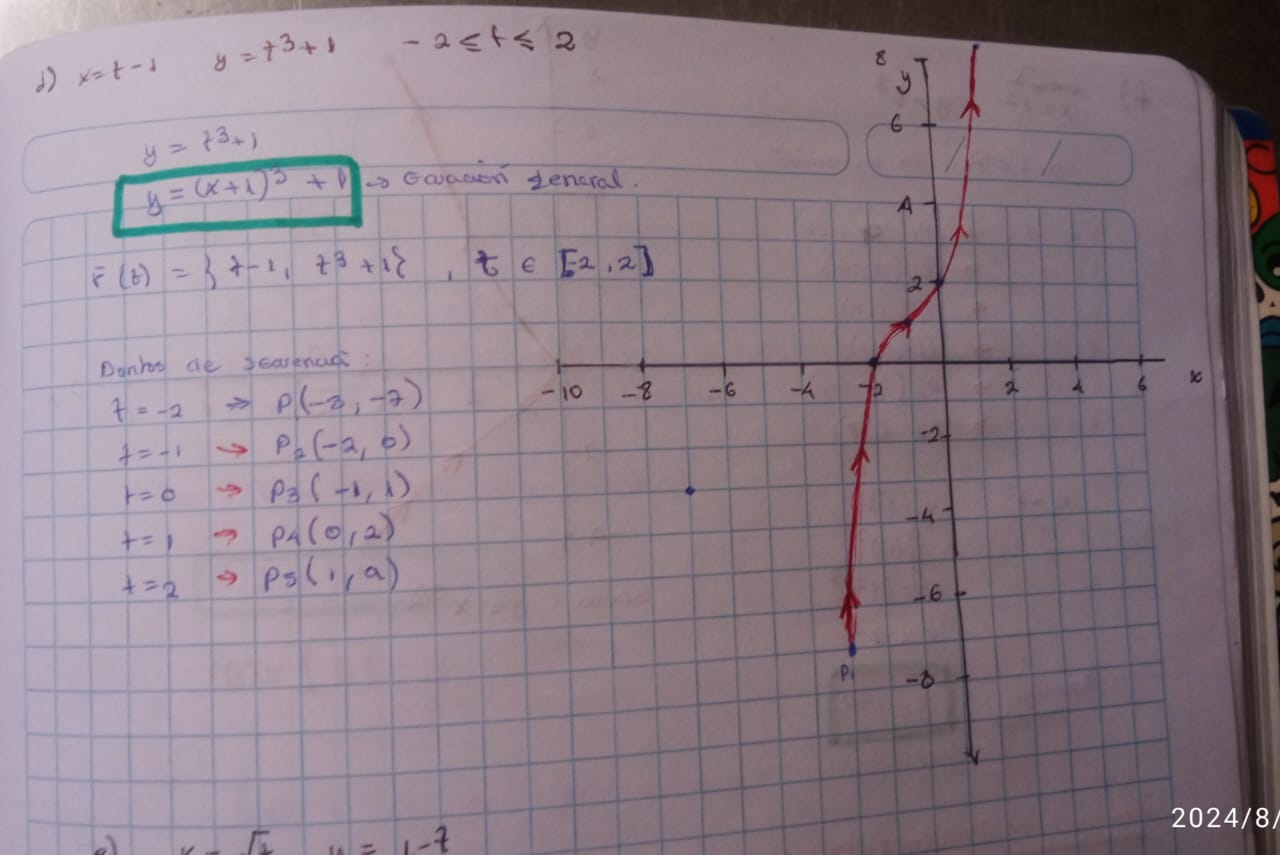 d) x = t - 1 y = t³ + 1 - 2 ≤ t ≤ 2
y = t³ + 1
y = (x+1)³ + 1 → Ecuación general.
r̄ (t) = { t-1, t³ +1 } , t ∈ [-2, 2]
de
t = -2 ⇒ P(-3, -7)
t = -1 → P2(-2, 0)
t = 0 → P3(-1, 1)
t = 1 → P4(0, 2)
t = 2 → P5(1, 9)
8
y
6
4
2
-10 -8 -6 -4 -2 2 4 6 x
-2
-4
-6
P1
-8
e) x = √t y = 1 - t
2024/8/